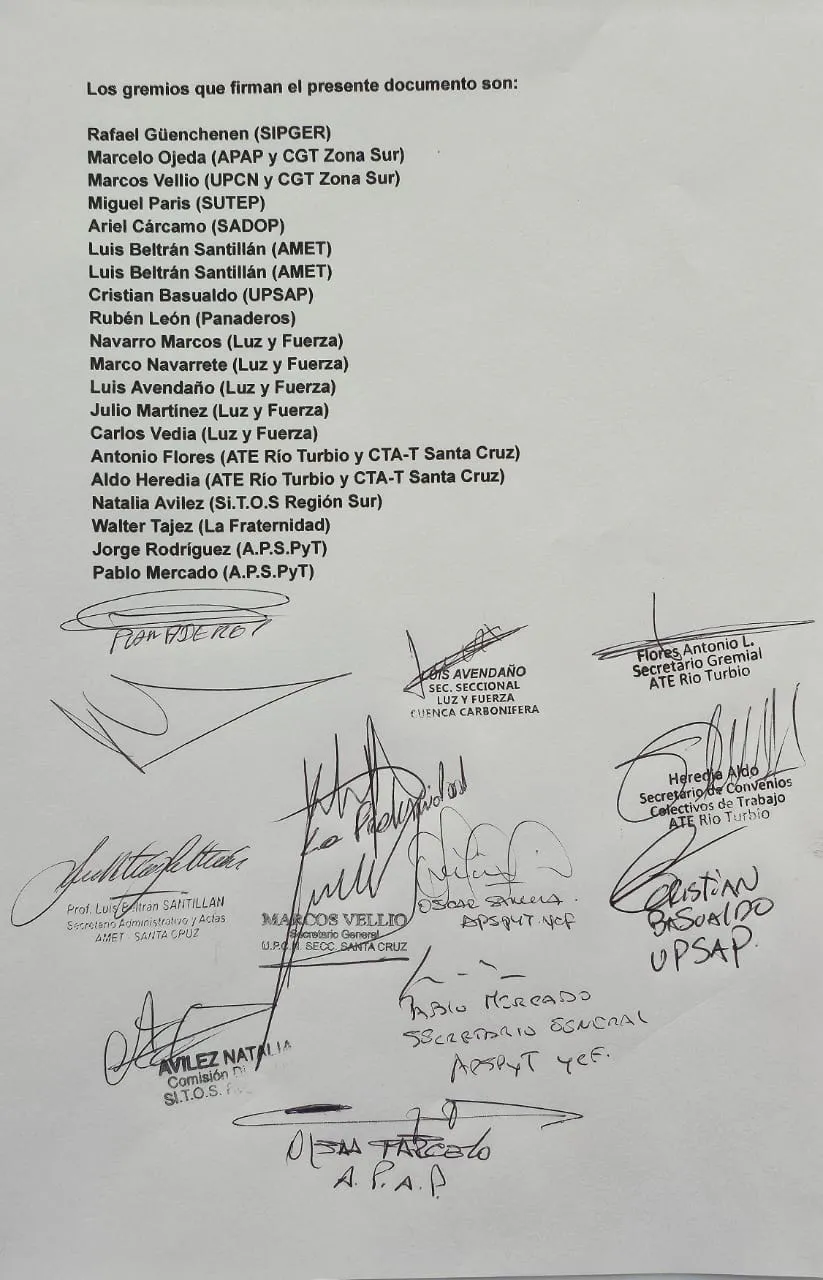 Los gremios que firman el presente documento son:
Rafael Güenchenen (SIPGER)
Marcelo Ojeda (APAP y CGT Zona Sur)
Marcos Vellio (UPCN y CGT Zona Sur)
Miguel Paris (SUTEP)
Ariel Cárcamo (SADOP)
Luis Beltrán Santillán (AMET)
Luis Beltrán Santillán (AMET)
Cristian Basualdo (UPSAP)
Rubén León (Panaderos)
Navarro Marcos (Luz y Fuerza)
Marco Navarrete (Luz y Fuerza)
Luis Avendaño (Luz y Fuerza)
Julio Martínez (Luz y Fuerza)
Carlos Vedia (Luz y Fuerza)
Antonio Flores (ATE Río Turbio y CTA-T Santa Cruz)
Aldo Heredia (ATE Río Turbio y CTA-T Santa Cruz)
Natalia Avilez (Si.T.O.S Región Sur)
Walter Tajez (La Fraternidad)
Jorge Rodríguez (A.P.S.PyT)
Pablo Mercado (A.P.S.PyT)
PANADEROS
LUIS AVENDAÑO
SEC. SECCIONAL
LUZ Y FUERZA
CUENCA CARBONIFERA
Flores Antonio L.
Secretario Gremial
ATE Rio Turbio
Heredia Aldo
Secretario de Convenios
Colectivos de Trabajo
ATE Rio Turbio
La Fraternidad
Prof. Luis Beltran SANTILLAN
Secretario Administrativo y Actas
AMET - SANTA CRUZ
MARCOS VELLIO
Secretario General
U.P.C.N. SECC. SANTA CRUZ
OSCAR
APSPYT.YCF
CRISTIAN
BASUALDO
UPSAP.
PABLO MERCADO
SECRETARIO GENERAL
APSPyT YCF.
AVILEZ NATALIA
Comisión
SI.T.O.S.
OJEDA MARCELO
A.P.A.P.